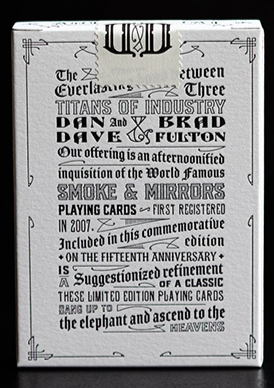 The etween
Everlasting Three
TITANS OF INDUSTRY
DAN And BRAD
DAVE & FULTON
Our offering is an afternoonified
inquisition of the World Famous
SMOKE & MIRRORS
PLAYING CARDS FIRST REGISTERED
IN 2007.
Included in this commemorative
edition
ON THE FIFTEENTH ANNIVERSARY
IS A Suggestionized refinement
OF A CLASSIC
THESE LIMITED EDITION PLAYING CARDS
BANG UP TO
the elephant and ascend to the
HEAVENS